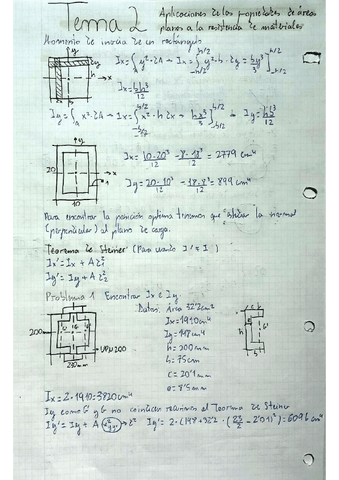 Tema 2 Aplicaciones de las propiedades de áreas
planas a la resistencia de materiales
Momento de inercia de un rectángulo
Ix = ∫A y²·dA → Ix = ∫-h/2^h/2 y²·b·dy = by³/3 ]-h/2^h/2
Ix = bh³/12
Ix = 10·20³/12 - 8·18³/12 = 2779 cm⁴
Iy = 20·10³/12 - 18·8³/12 = 899 cm⁴
20
10
Para encontrar la posición óptima tenemos que la normal
(perpendicular) al plano de carga.
Teorema de Steiner (Para cuando I' ≠ I)
Ix' = Ix + A
Iy' = Iy + A
Problema 1 Encontrar Ix e Iy.
Datos: Área 32'2cm²
Ix = 1910cm⁴
Iy = 148cm⁴
h = 200mm
b = 75cm
c = 20'1mm
e = 8'5mm
200
UPN 200
230mm
Ix = 2·1910 = 3820cm⁴
Iy como G' y G no coinciden recurrimos al Teorema de Steiner
Iy' = 2·(148 + 32'2·(23/2 - 2'01)²) = 6096 cm⁴